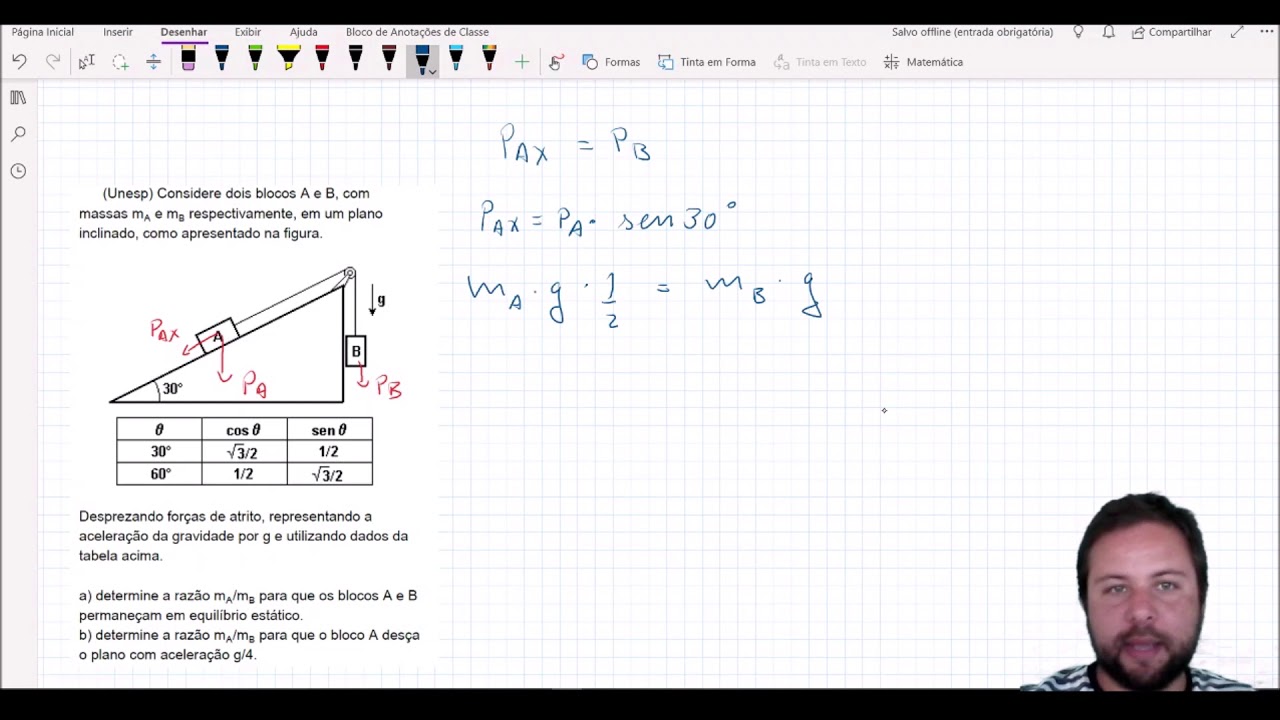 Página Inicial Inserir Desenhar Exibir Ajuda Bloco de Anotações de Classe Salvo offline (entrada obrigatória) Compartilhar
Formas Tinta em Forma Tinta em Texto Matemática
(Unesp) Considere dois blocos A e B, com
massas mA e mB respectivamente, em um plano
inclinado, como apresentado na figura.
g
PAX
A
B
30°
PA
PB
θ cos θ sen θ
30° √3/2 1/2
60° 1/2 √3/2
Desprezando forças de atrito, representando a
aceleração da gravidade por g e utilizando dados da
tabela acima.
a) determine a razão mA/mB para que os blocos A e B
permaneçam em equilíbrio estático.
b) determine a razão mA/mB para que o bloco A desça
o plano com aceleração g/4.
PAX = PB
PAX = PA · sen 30°
mA · g · 1/2 = mB · g